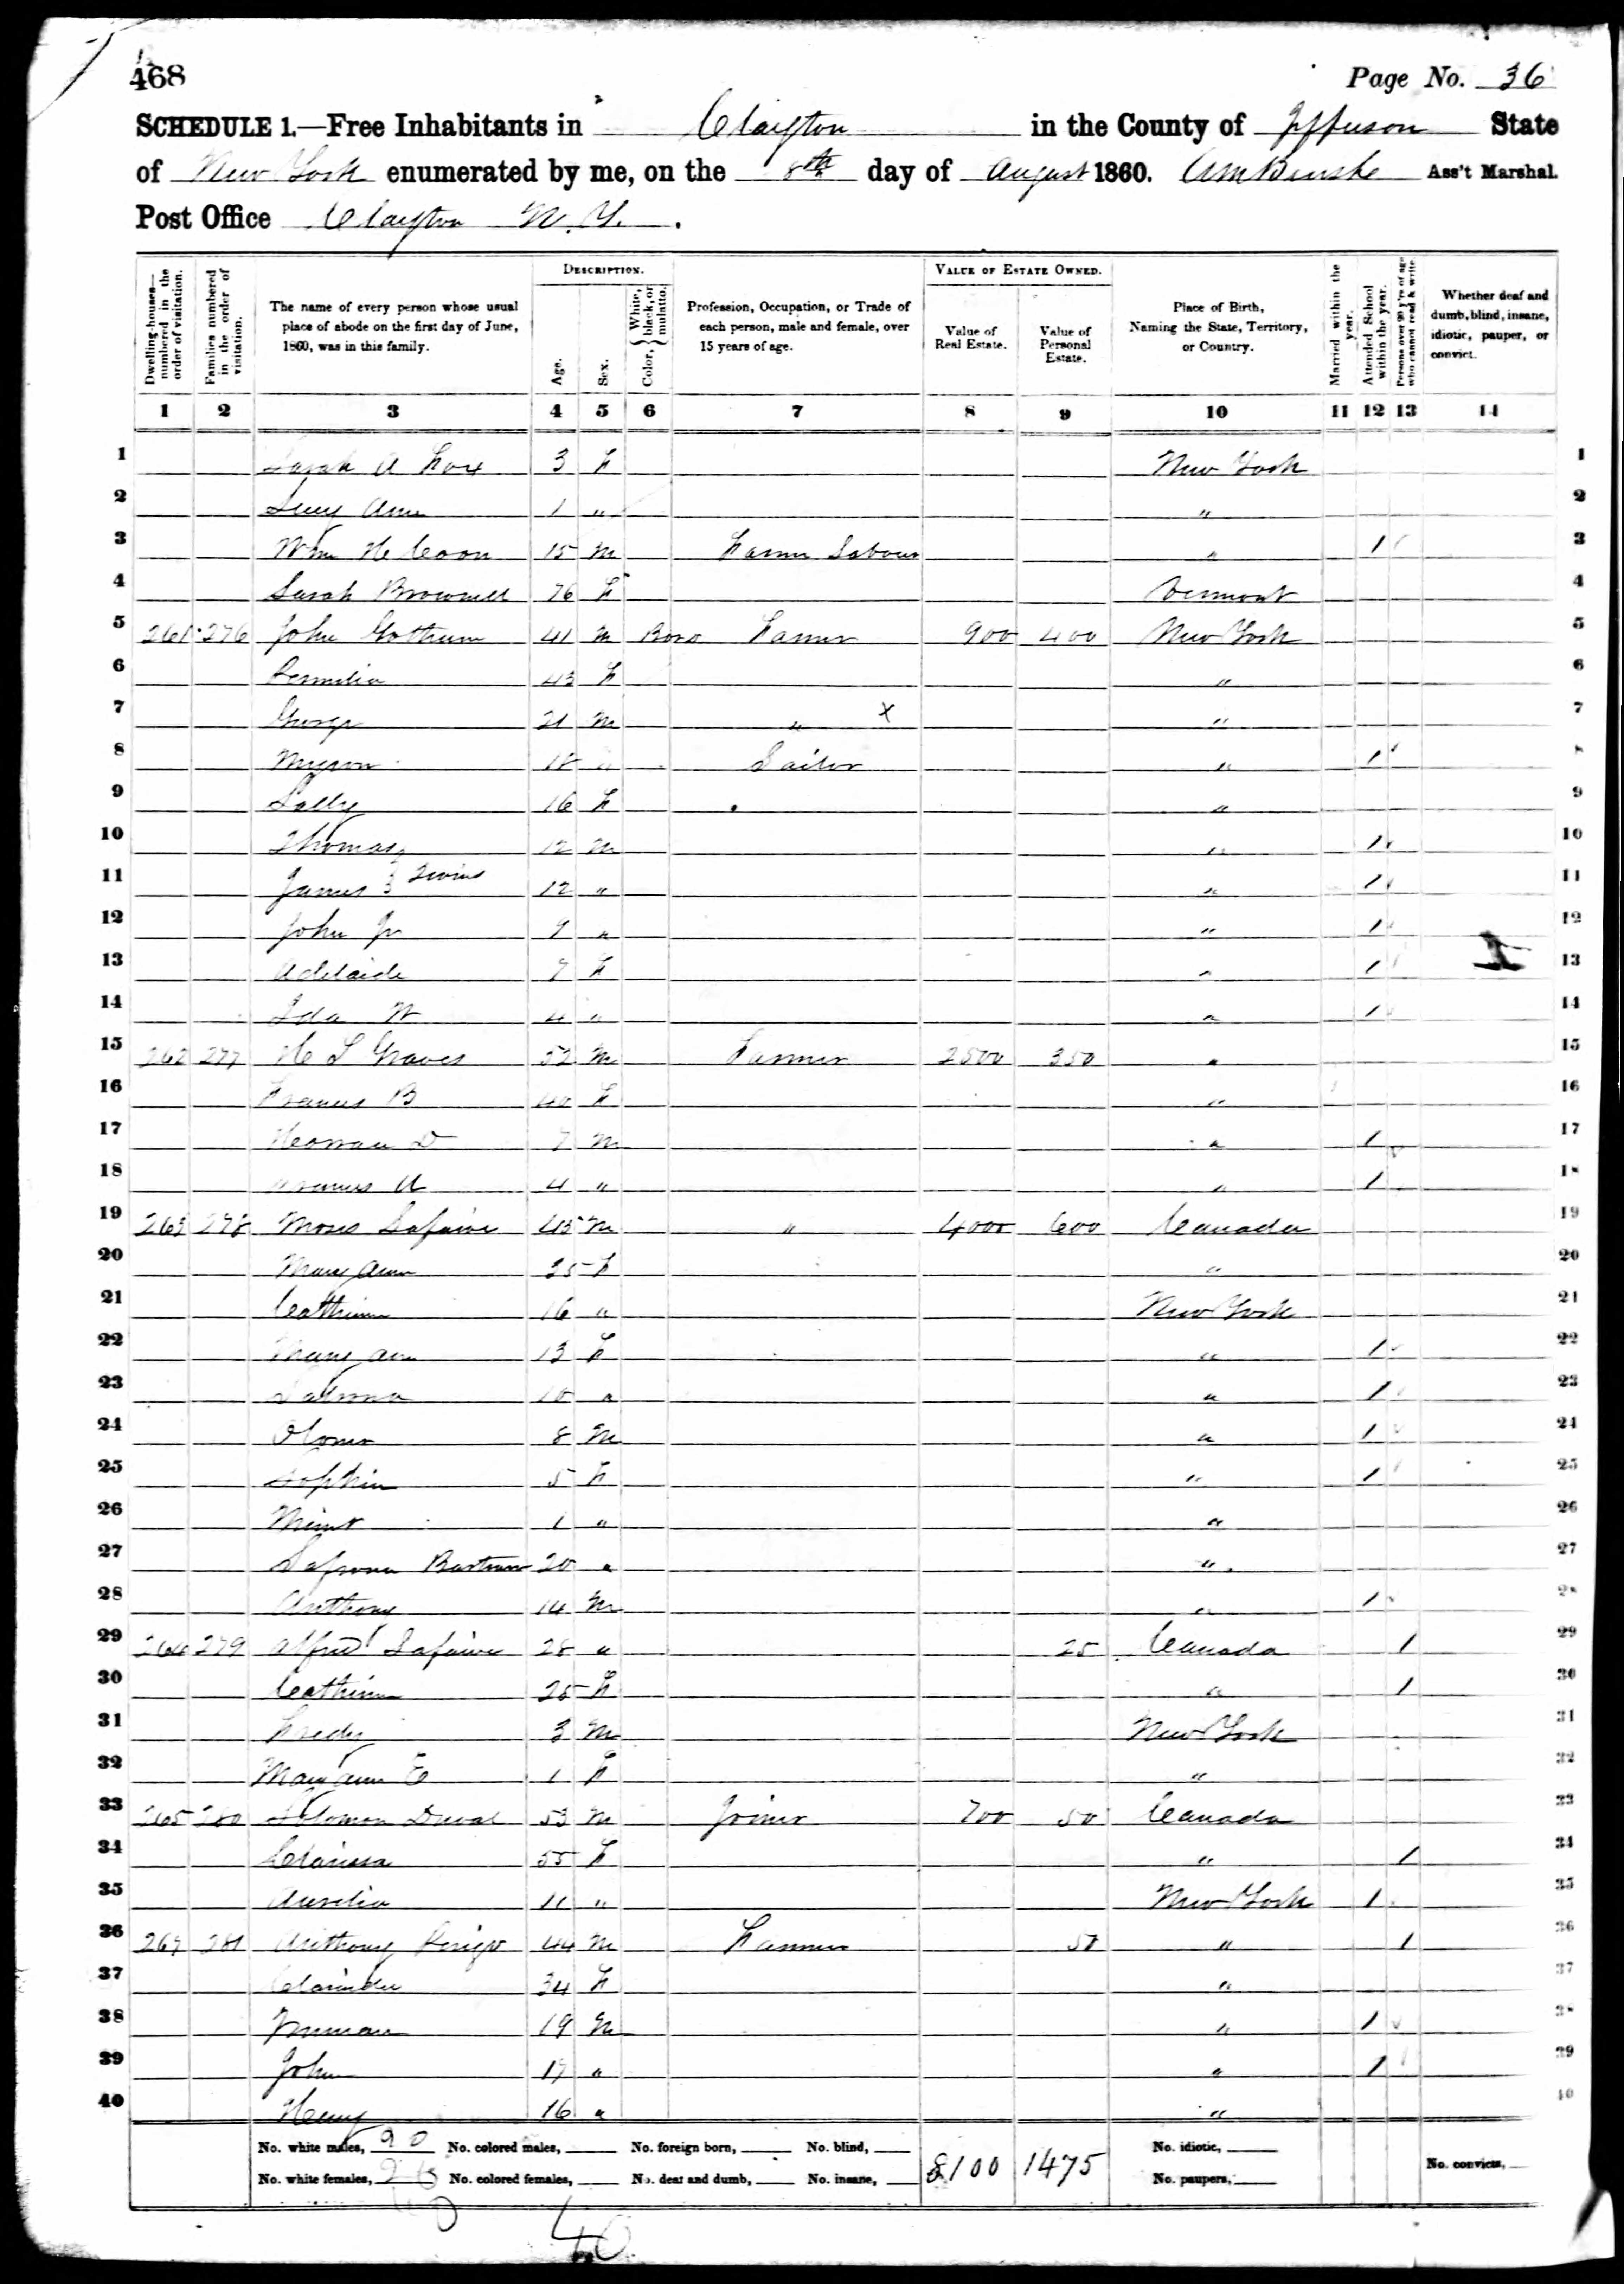 468
Page No. 36
SCHEDULE 1.—Free Inhabitants in Clayton in the County of Jefferson State
of New York enumerated by me, on the 8th day of August 1860. Ass't Marshal.
Post Office Clayton N. Y.
Dwelling-houses—numbered in the order of visitation.
Families numbered in the order of visitation.
The name of every person whose usual place of abode on the first day of June, 1860, was in this family.
DESCRIPTION.
Age.
Sex.
Color, { White, black, or mulatto.
Profession, Occupation, or Trade of each person, male and female, over 15 years of age.
VALUE OF ESTATE OWNED.
Value of Real Estate.
Value of Personal Estate.
Place of Birth, Naming the State, Territory, or Country.
Married within the year.
Attended School within the year.
Persons over 20 y'rs of age who cannot read & write.
Whether deaf and dumb, blind, insane, idiotic, pauper, or convict.
1 2 3 4 5 6 7 8 9 10 11 12 13 14
1 Sarah A 3 F New York 1
2 Lucy Ann 1 " " 2
3 Wm H Coon 15 M Farm Labour " 1 3
4 Sarah Brownell 76 F Vermont 4
5 261 276 John 41 M Farmer 900 400 New York 5
6 43 F " 6
7 George 21 M " X " 7
8 Myron 18 " Sailor " 1 8
9 Sally 16 F " 9
10 Thomas 12 M " 1 10
11 James } Twins 12 " " 1 11
12 John Jr 9 " " 1 12
13 Adelaide 7 F " 1 13
14 Ida 4 " " 1 14
15 262 277 H L Graves 52 M Farmer 2500 350 " 15
16 Frances B 40 F " 16
17 D 7 M " 1 17
18 Francis A 4 " " 1 18
19 263 278 Moses 45 M " 4000 600 Canada 19
20 Mary Ann 35 F " 20
21 Catherine 16 " New York 21
22 Mary Ann 13 F " 1 22
23 10 " " 1 23
24 8 M " 1 24
25 Sophia 5 F " 1 25
26 1 " " 26
27 20 " " 27
28 Anthony 14 M " 1 28
29 264 279 Alfred 28 " 25 Canada 1 29
30 Catherine 25 F " 1 30
31 Fredy 3 M New York 31
32 Mary Ann E 1 F " 32
33 265 280 Solomon Duval 53 M Joiner 700 50 Canada 33
34 Clarissa 55 F " 1 34
35 Aurelia 11 " New York 1 35
36 267 281 Anthony 44 M Farmer 50 " 1 36
37 Clarinda 34 F " 37
38 Truman 19 M " 1 38
39 John 17 " " 1 39
40 Henry 16 " " 40
No. white males, 20 No. colored males, No. foreign born, No. blind, 8100 1475 No. idiotic,
No. white females, No. colored females, No. deaf and dumb, No. insane, No. paupers, No. convicts,
40